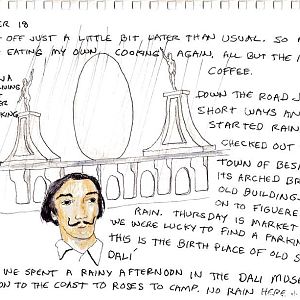 ER 18
OFF JUST A LITTLE BIT LATER THAN USUAL. SO
EATING MY OWN COOKING AGAIN. ALL BUT THE
COFFEE.
DOWN THE ROAD
SHORT WAYS AN
STARTED RAIN
CHECKED OUT
TOWN OF BESA
ITS ARCHED BR
OLD BUILDING
ON TO FIGUERE
RAIN. THURSDAY IS MARKET
WE WERE LUCKY TO FIND A PARKIN
THIS IS THE BIRTH PLACE OF OLD S
DALI
WE SPENT A RAINY AFTERNOON IN THE DALI MUS
ON TO THE COAST TO ROSES TO CAMP. NO RAIN HERE